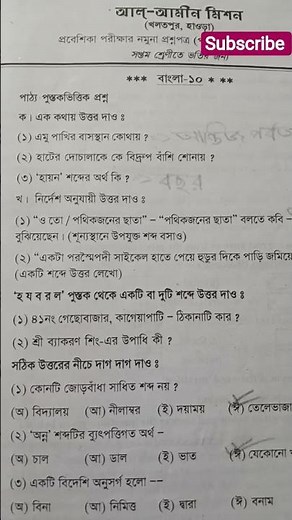 আল্-আমীন মিশন
(খলতপুর, হাওড়া)
প্রবেশিকা পরীক্ষার নমুনা প্রশ্নপত্র
Subscribe
সপ্তম শ্রেণীতে ভর্তির জন্য
*** বাংলা-১০ ***
পাঠ্য পুস্তকভিত্তিক প্রশ্ন
ক। এক কথায় উত্তর দাও ঃ
(১) এমু পাখির বাসস্থান কোথায় ?
(২) হাটের দোচালাকে কে বিদ্রূপ বাঁশি শোনায় ?
(৩) 'হায়ন' শব্দের অর্থ কি ?
বছর
খ। নির্দেশ অনুযায়ী উত্তর দাও ঃ
(১) "ও তো / পথিকজনের ছাতা" – "পথিকজনের ছাতা" বলতে কবি –
বুঝিয়েছেন। (শূন্যস্থানে উপযুক্ত শব্দ বসাও)
(২) "একটা পরস্মৈপদী সাইকেল হাতে পেয়ে হুড়ুর দিকে পাড়ি জমিয়ে
(একটি শব্দে উত্তর লেখো)
'হ য ব র ল' পুস্তক থেকে একটি বা দুটি শব্দে উত্তর দাও ঃ
(১) ৪১নং গেছোবাজার, কাগেয়াপাটি – ঠিকানাটি কার ?
(২) শ্রী ব্যাকরণ শিং-এর উপাধি কী ?
সঠিক উত্তরের নীচে দাগ দাগ দাও ঃ
(১) কোনটি জোড়বাঁধা সাধিত শব্দ নয় ?
(অ) বিদ্যালয় (আ) নীলাম্বর (ই) দয়াময় (ঈ) তেলেভাজা
(২) 'অন্ন' শব্দটির ব্যুৎপত্তিগত অর্থ –
(অ) চাল (আ) ডাল (ই) ভাত (ঈ) যেকোনো
(৩) একটি বিদেশি অনুসর্গ হলো --
(অ) বিনা (আ) নিমিত্ত (ই) দ্বারা (ঈ) বনাম